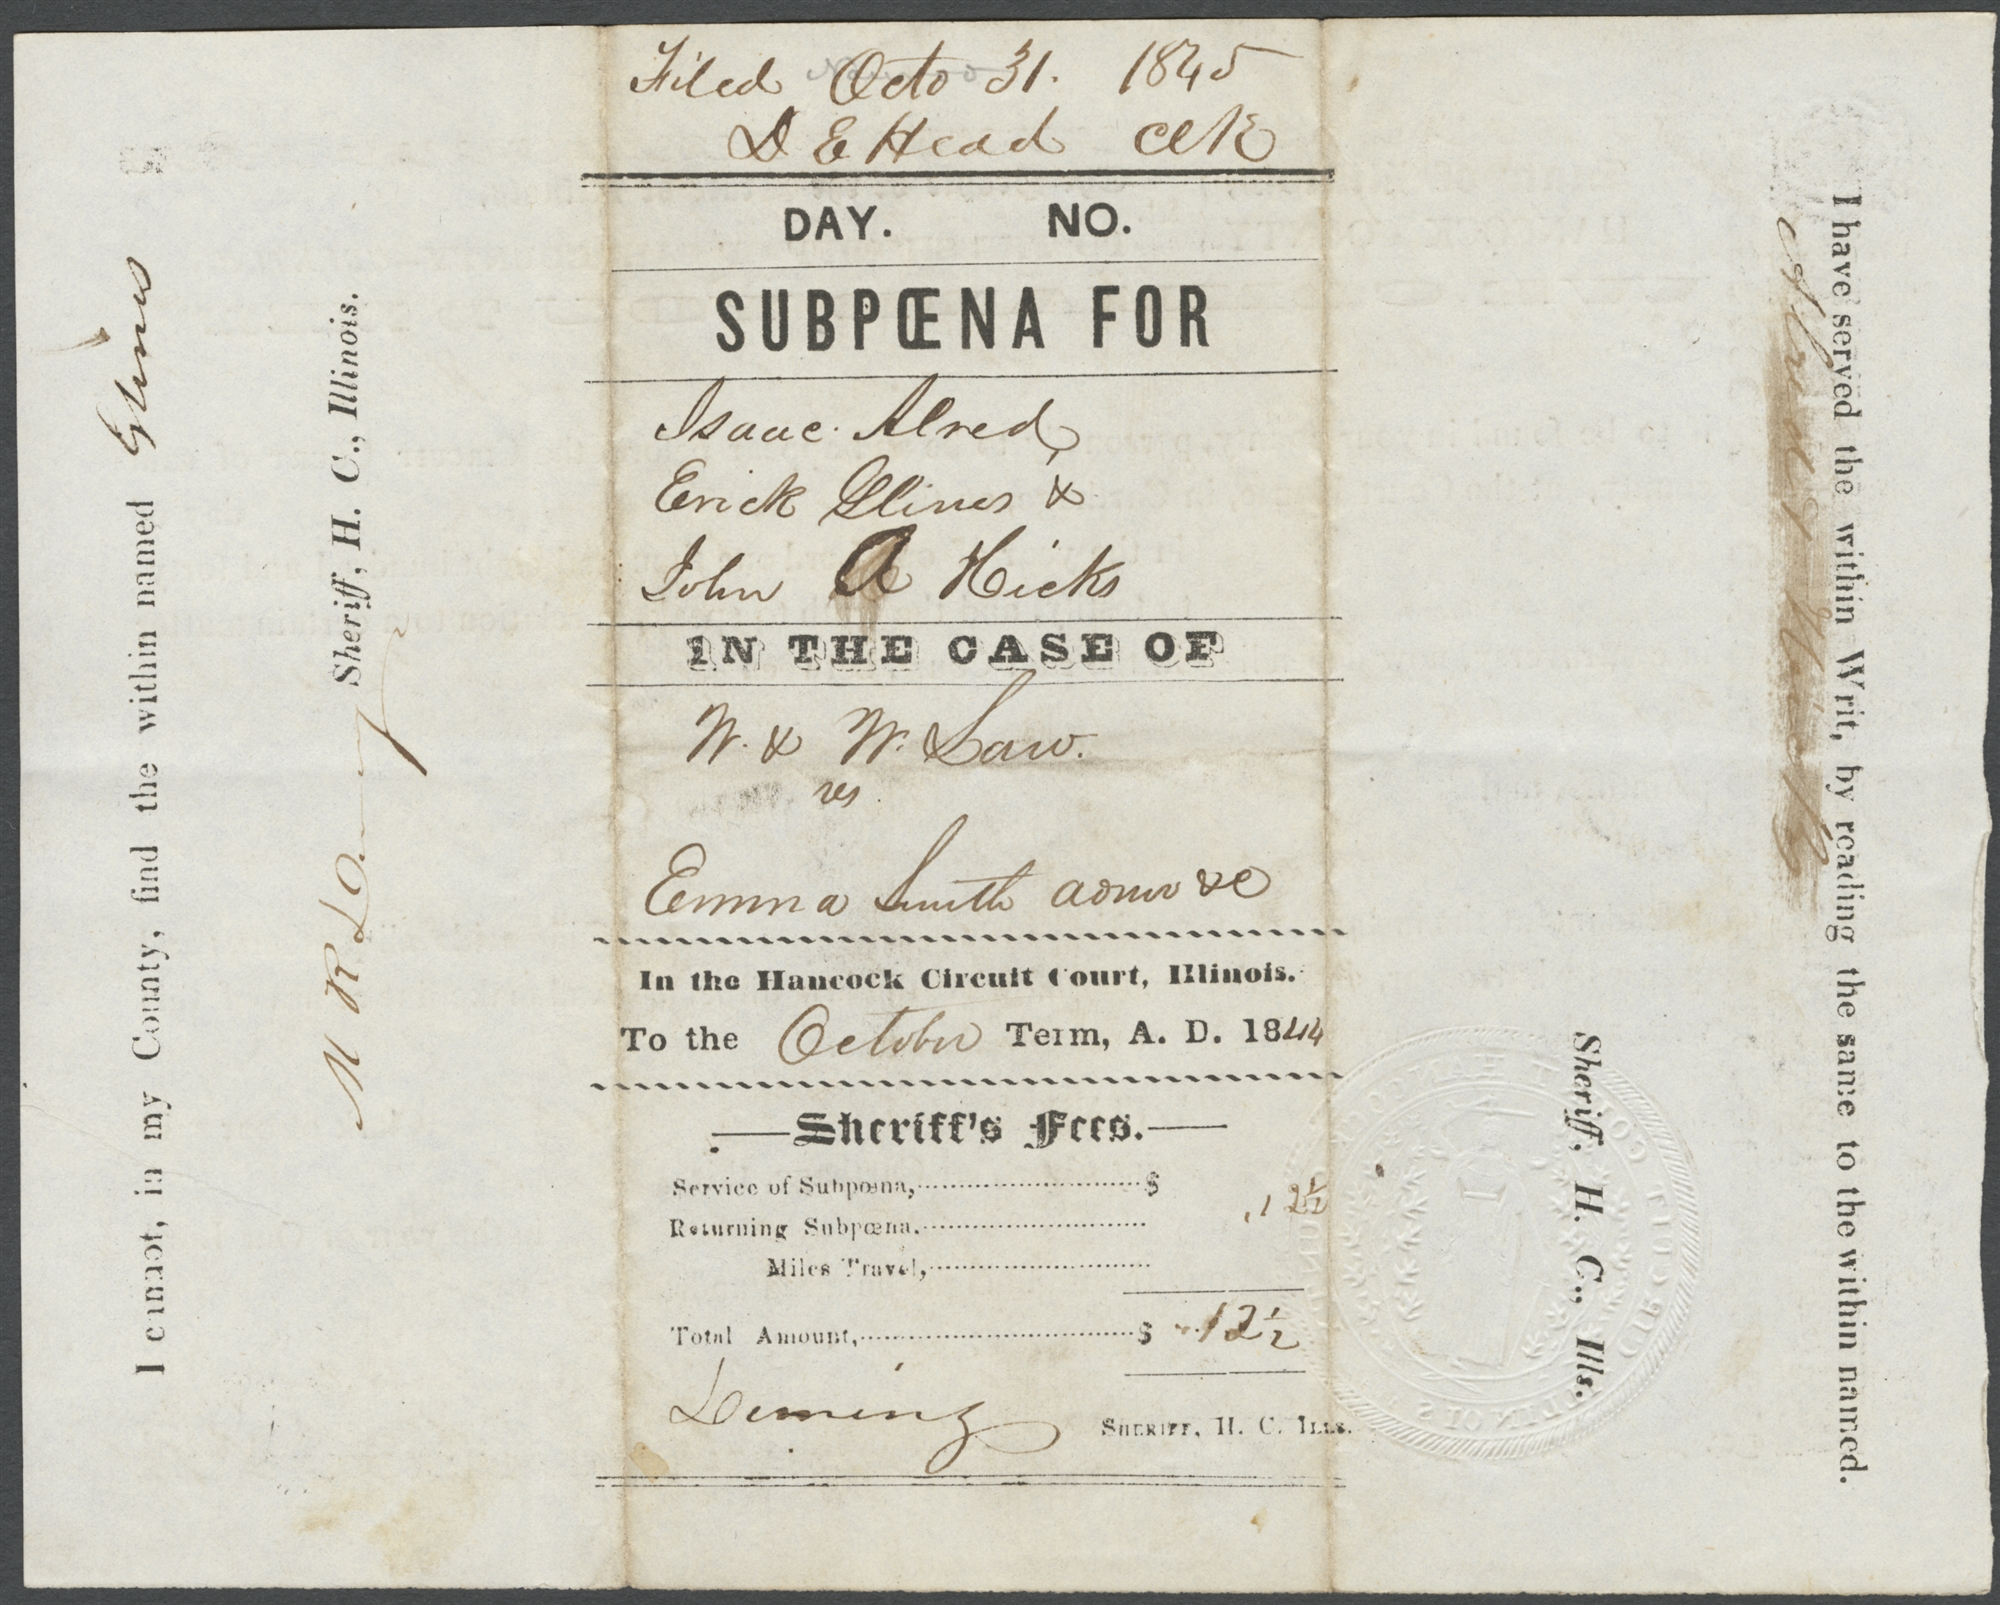 Filed Octo 31. 1845
D E Head Clk
DAY. NO.
SUBPŒNA FOR
Isaac Alred,
Erick Glines &
John A Hicks
IN THE CASE OF
W. & W. Law.
vs
Emma Smith admr &c
In the Hancock Circuit Court, Illinois.
To the October Term, A. D. 1844
Sheriff's Fees.
Service of Subpœna, $ .12½
Returning Subpœna,
Miles Travel,
Total Amount, $ .12½
Deming SHERIFF, H. C. ILLS.
I cannot, in my County, find the within named Glines
M R Deming Sheriff, H. C., Illinois.
I have served the within Writ, by reading the same to the within named.
Alred & Hicks
Sheriff, H. C., Ills.